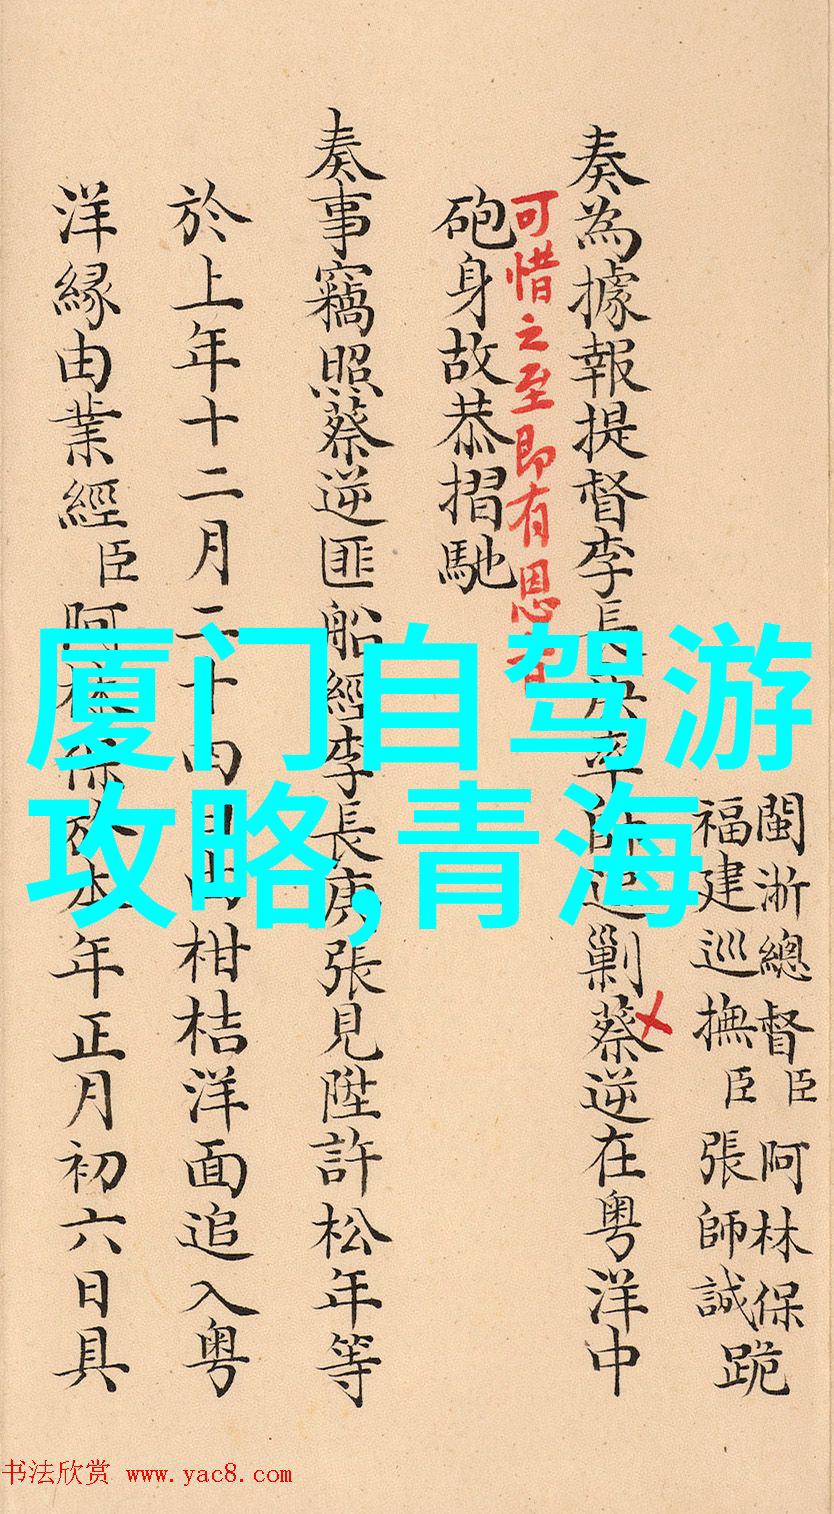 閩浙總督臣阿林保跪
福建巡撫臣張師誠
奏為據報提督李長庚率師追剿蔡逆在粤洋中
可惜之至即有恩旨
砲身故恭摺馳
奏事竊照蔡逆匪船經李長庚張見陞許松年等
於上年十二月二十四日由柑桔洋面追入粤
洋緣由業經臣阿林保於本年正月初六日具
厦门自驾游
攻略,青海
书法欣赏 www.yac8.com